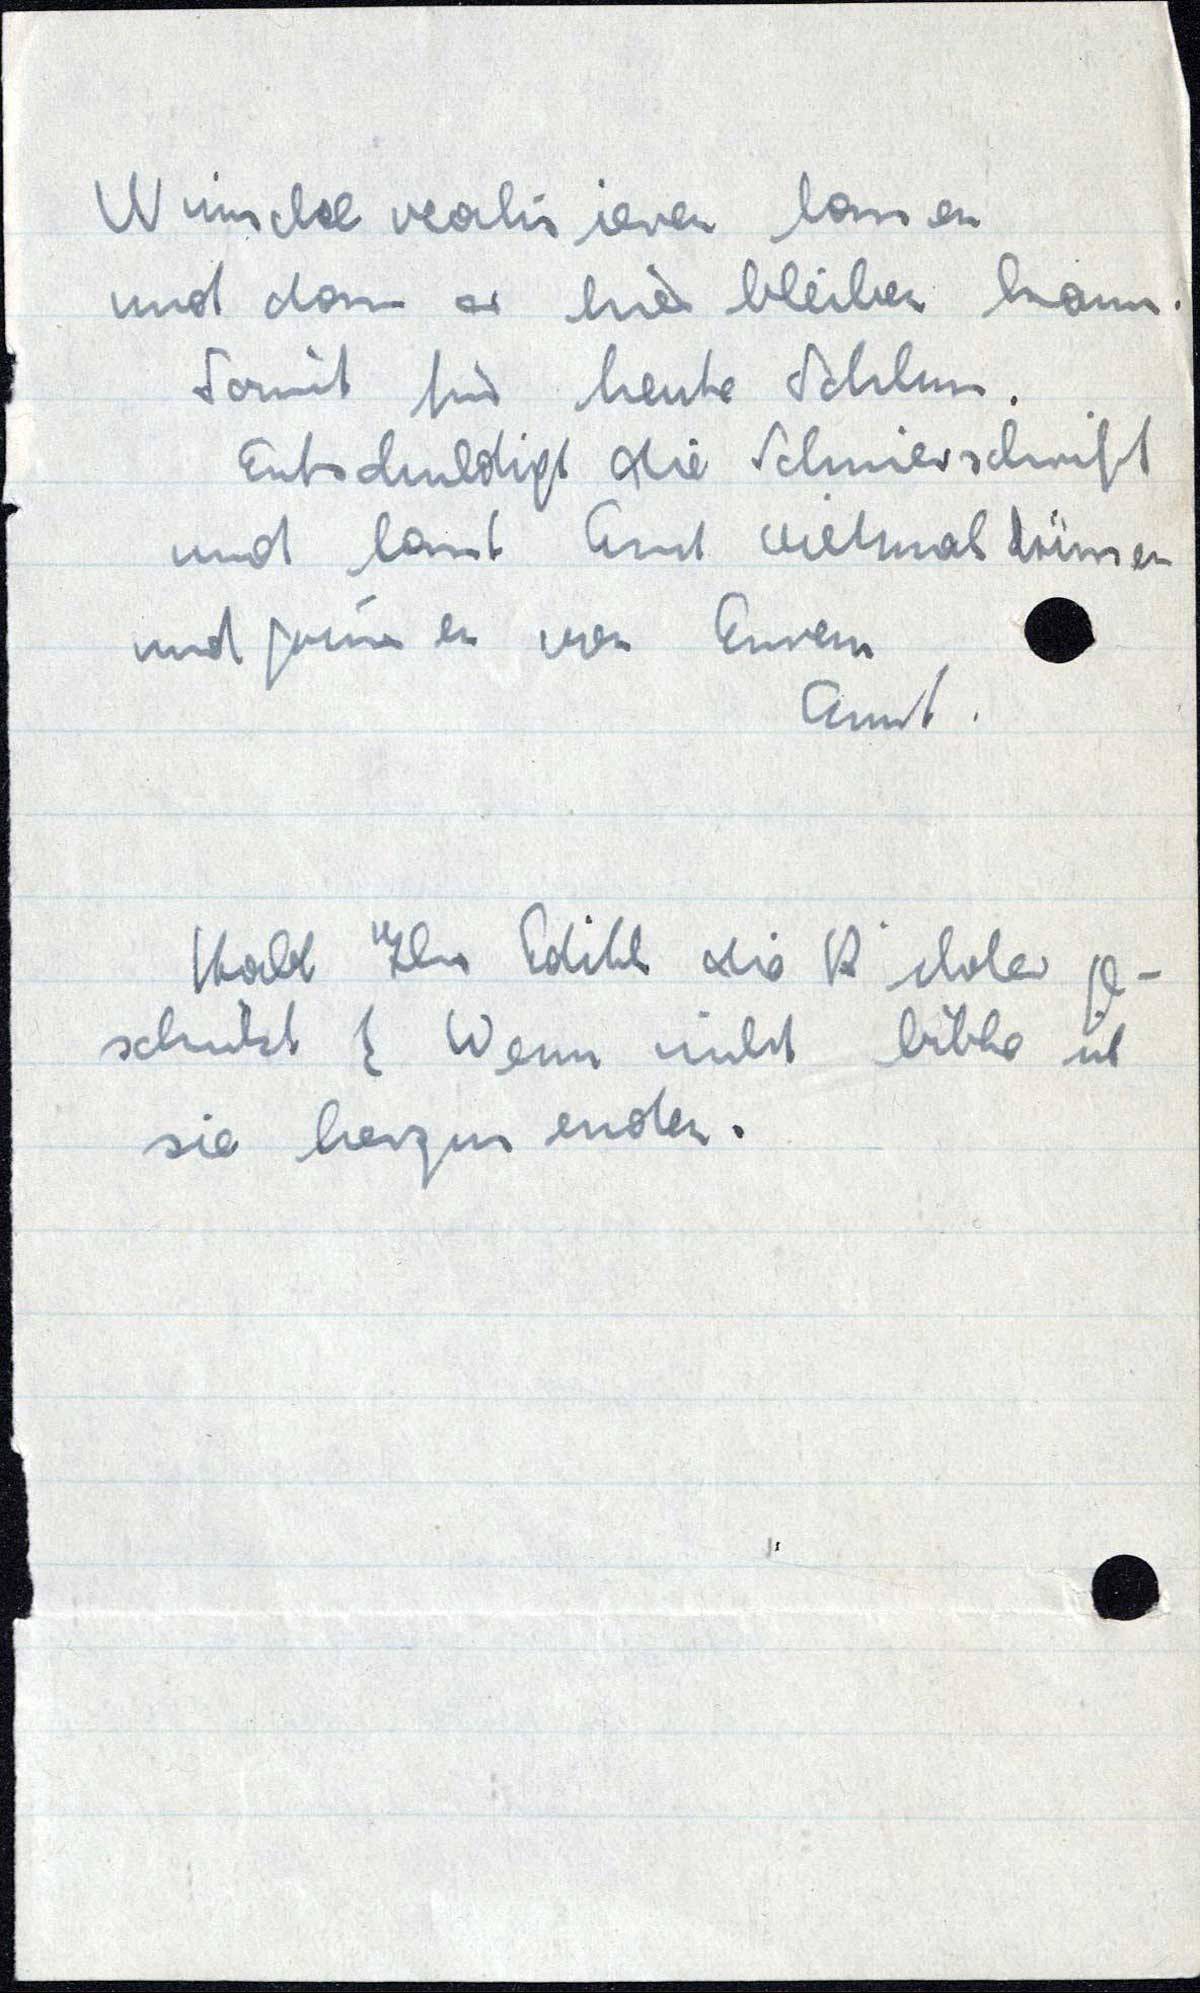 Wünsche realisieren lassen
und dass er hier bleiben kann.
Somit für heute Schluss.
Entschuldigt die Schmierschrift
und lasst Euch vielmals küssen
und grüssen von Eurem
Habt Ihr Edith die Bilder ge-
schickt? Wenn nicht bitte ich
sie herzusenden.